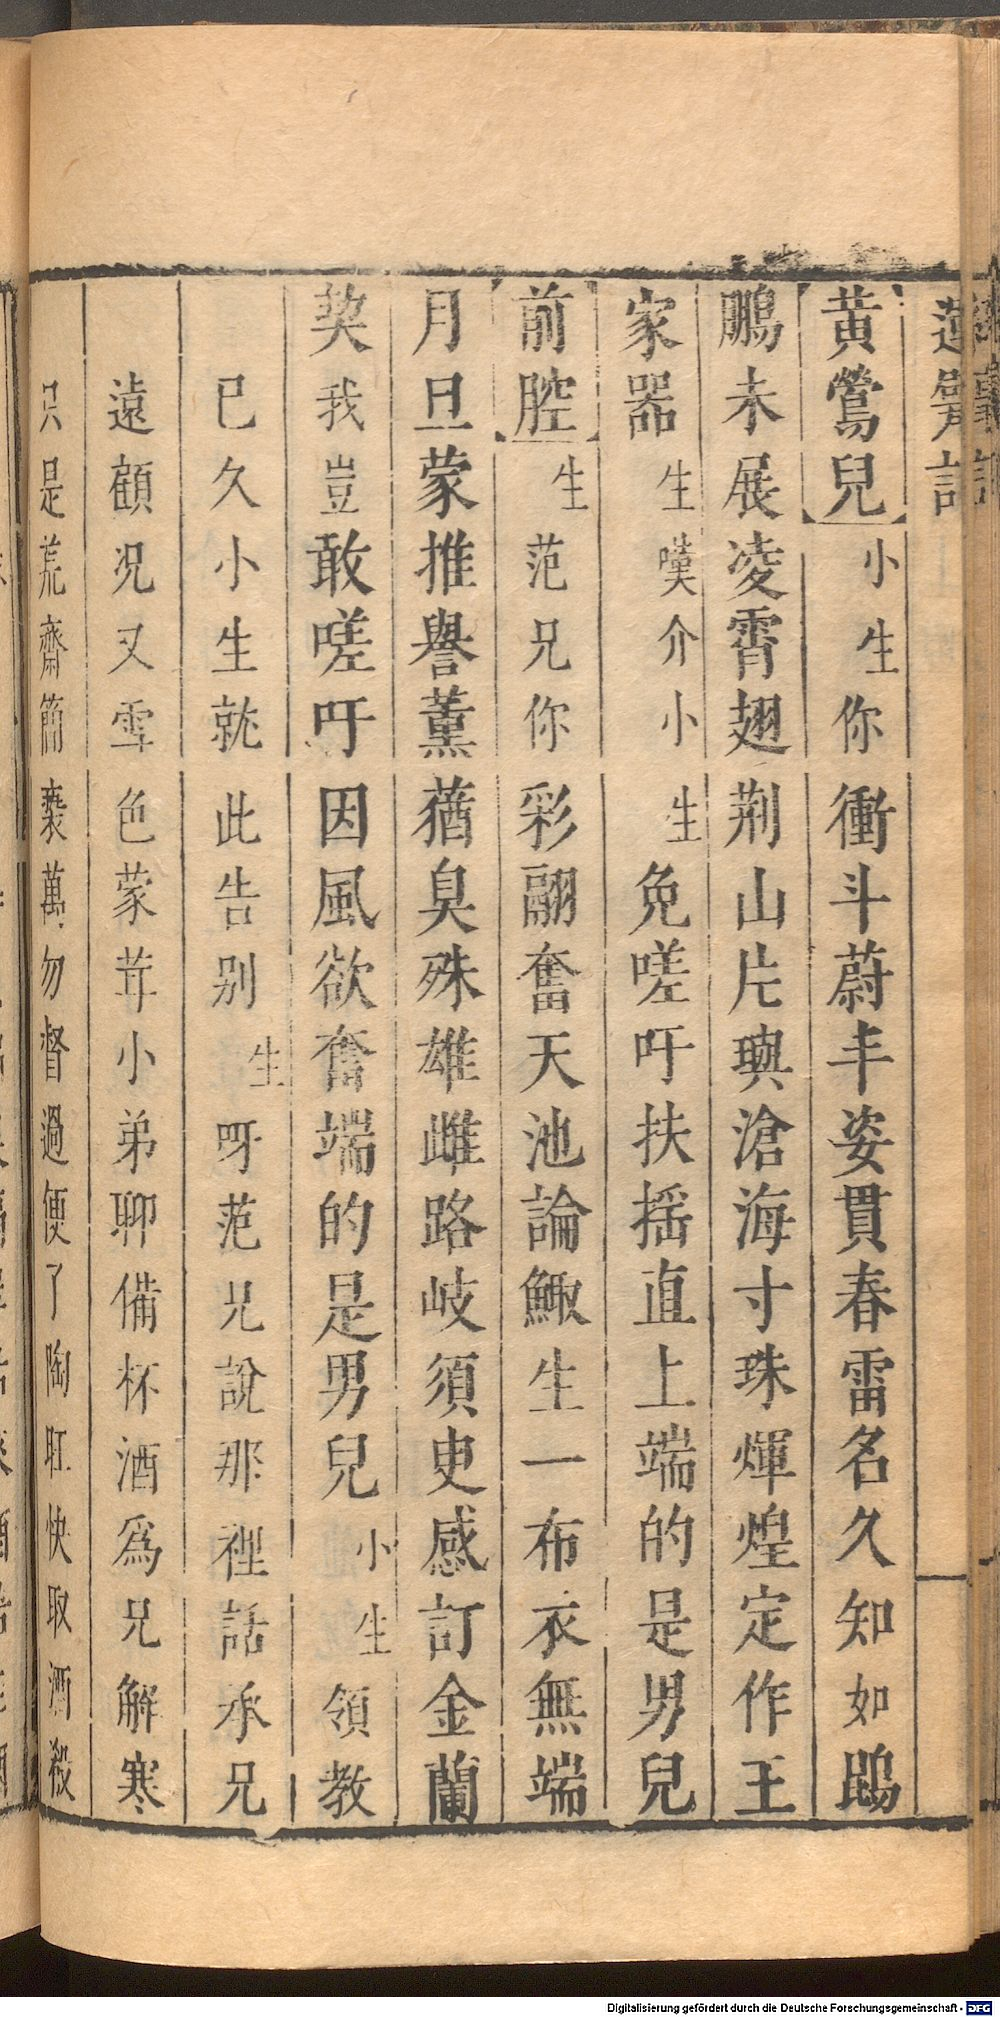 記
黃鶯兒小生你衝斗蔚丰姿貫春雷名久知如鵾
鵬未展凌霄翅荆山片璵滄海寸珠煇煌定作王
家器生嘆介小生免嗟吁扶搖直上端的是男兒
前腔生范兄你彩翮奮天池論鯫生一布衣無端
月旦蒙推譽薰蕕臭殊雄雌路岐須臾感訂金蘭
契我豈敢嗟吁因風欲奮端的是男兒小生領教
已久小生就此告别生呀范兄說那裡話承兄
遠顧况又雪色蒙茸小弟聊備杯酒爲兄解寒
只是荒齋簡褻萬勿督過便了陶肛快取酒殽
Digitalisierung gefördert durch die Deutsche Forschungsgemeinschaft - DFG